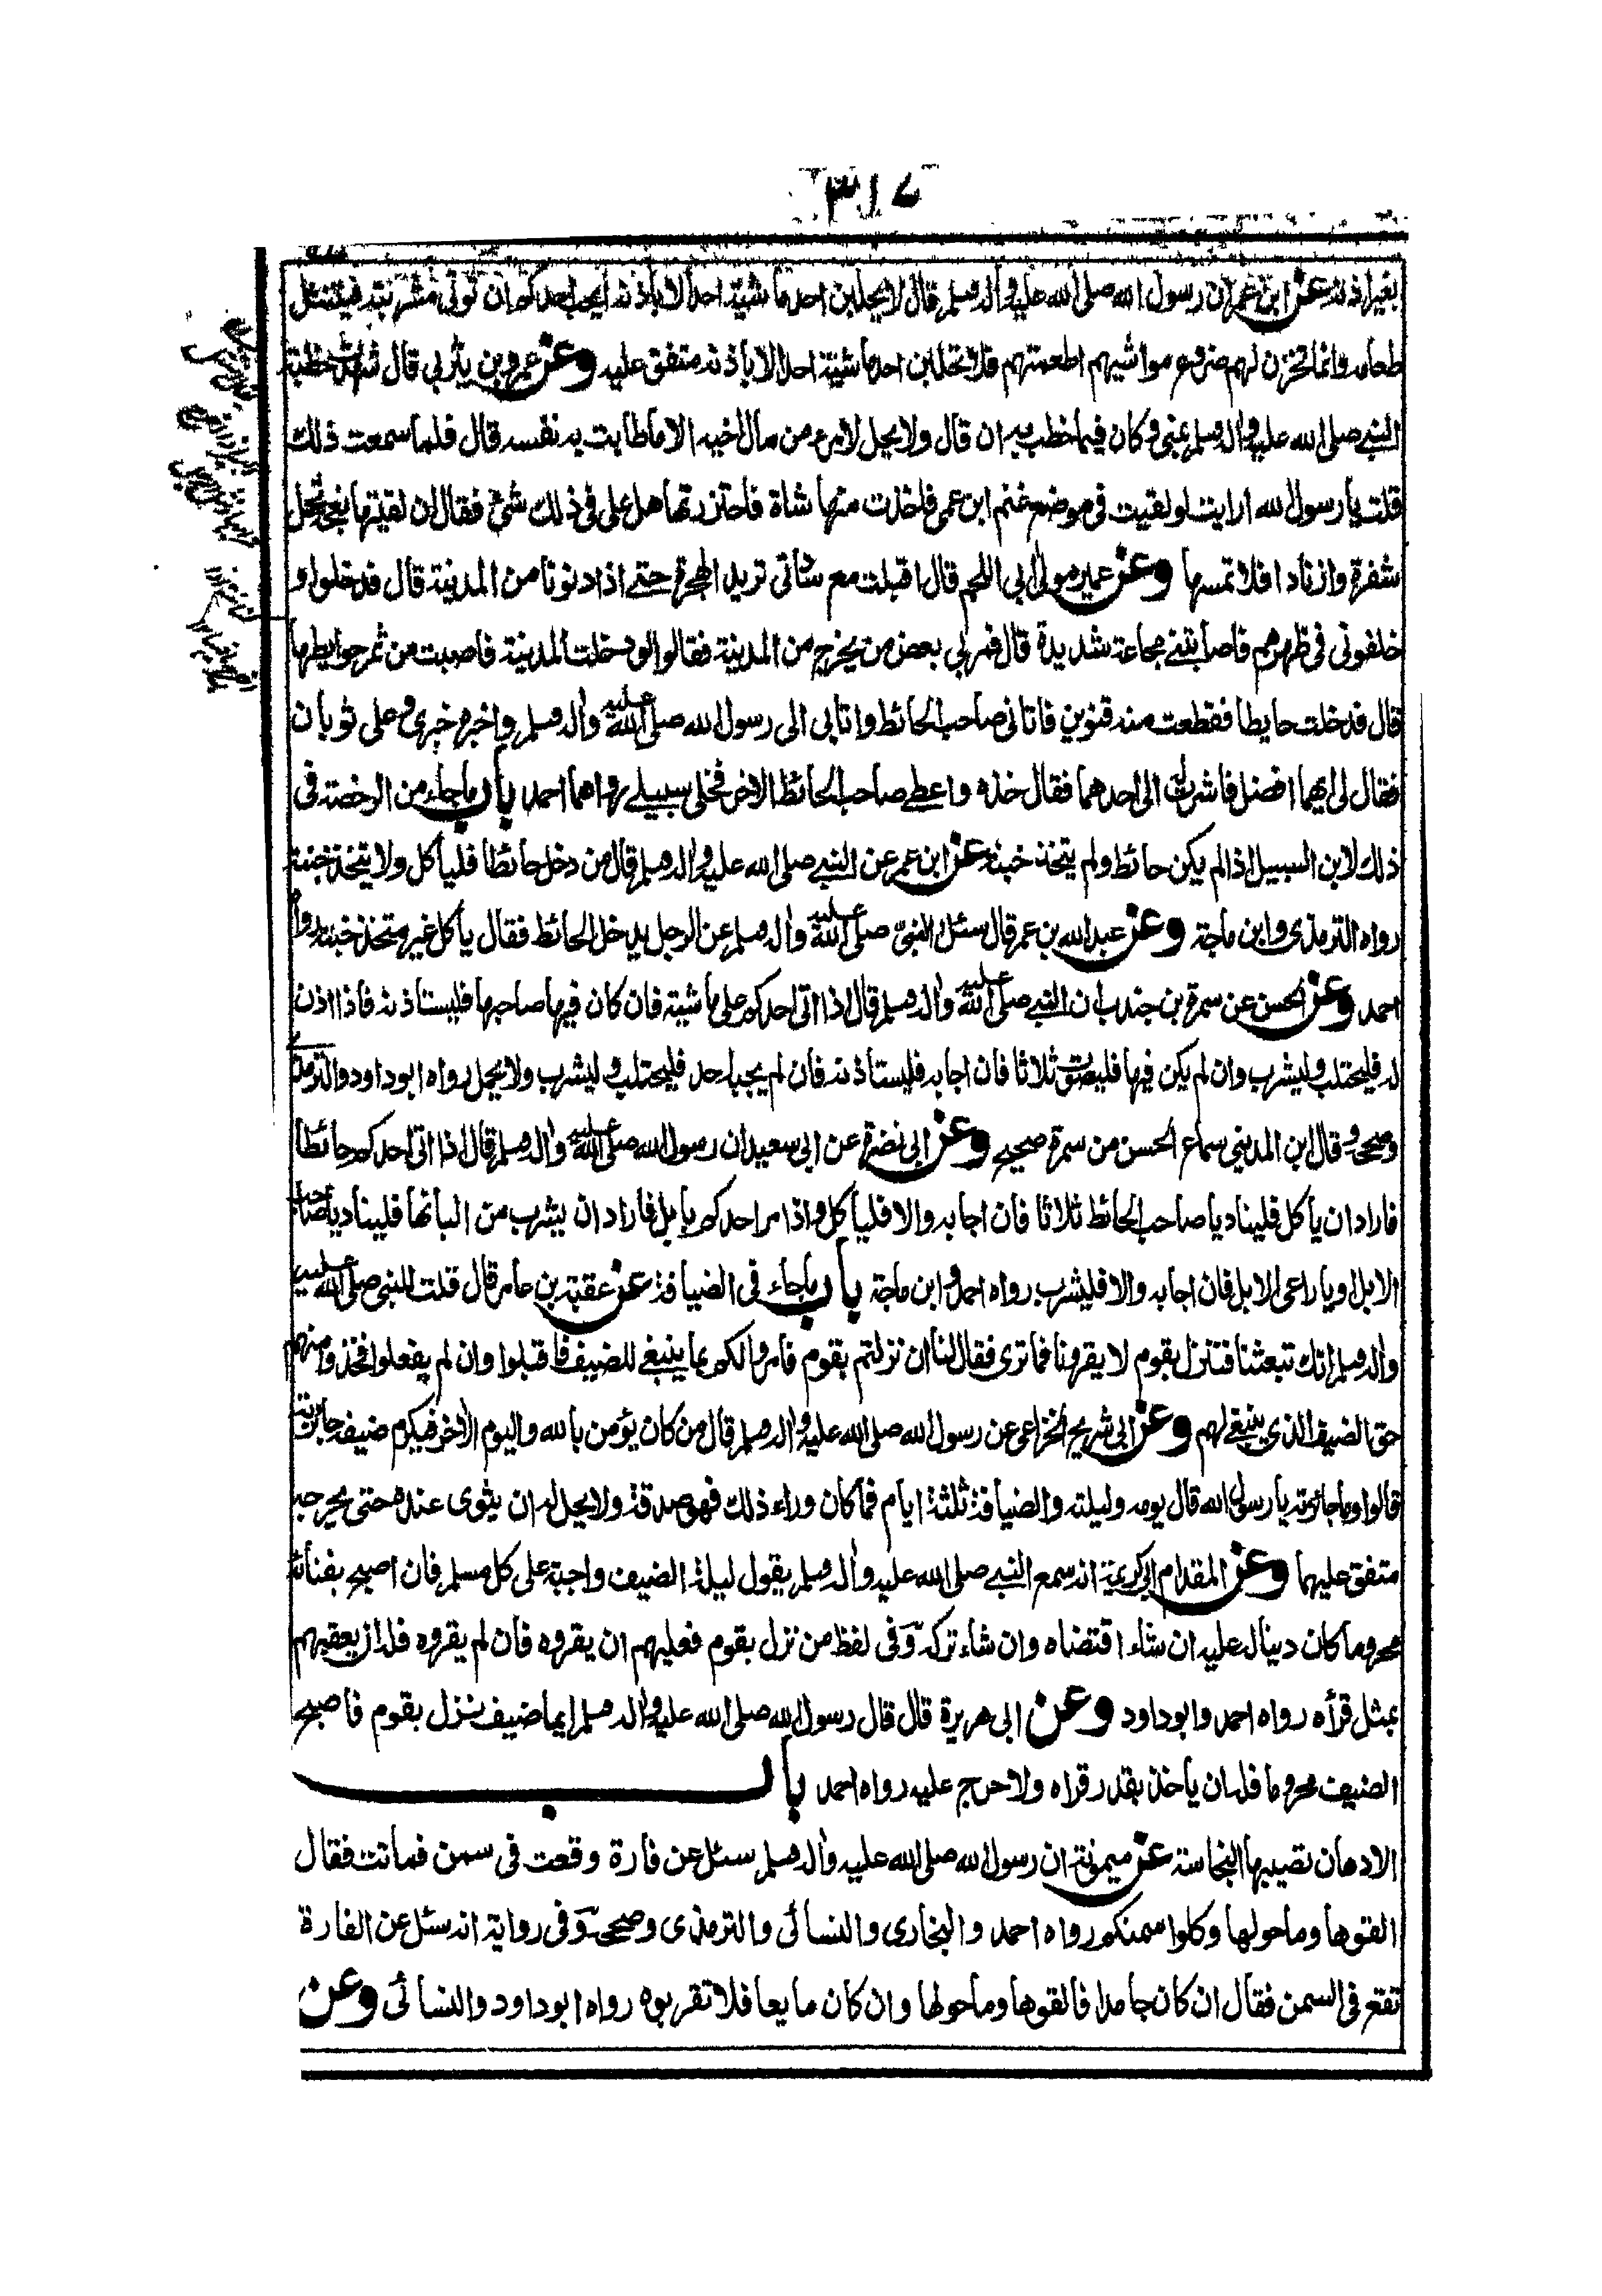 ٣١٧
بغير اذنه عن ابن عمر ان رسول الله صلى الله عليه واٰله وسلم قال لا يحلبن احد ماشية احد الا باذنه ايحب احدكم ان تؤتى مشربته فينتثل
طعامه وانما تخزن لهم ضروع مواشيهم اطعمتهم فلا يحلبن احد ماشية احد الا باذنه متفق عليه وعن عمرو بن يثربي قال شهدت خطبة
النبي صلى الله عليه واٰله وسلم بمنى وكان فيما خطب به ان قال ولا يحل لامرء من مال اخيه الا ما طابت به نفسه قال فلما سمعت ذلك
قلت يا رسول الله ارايت لو لقيت في موضع غنم ابن عمى فاخذت منها شاة فاحتزرتها هل على في ذلك شئ فقال ان لقيتها نعجة تحمل
شفرة وازنادا فلا تمسها وعن عمير مولى ابي اللحم قال اقبلت مع ساداتى تريد الهجرة حتى اذا دنونا من المدينة قال فدخلوا و
خلفونى فى ظهرهم فاصابتنى مجاعة شديدة قال فمر بى بعض من يخرج من المدينة فقالوا لو دخلت المدينة فاصبت من ثمر حوايطها
قال فدخلت حايطا فقطعت منه قنوين فاتانى صاحب الحائط واتا بى الى رسول الله صلى الله عليه واٰله وسلم واخبره خبرى وعلى ثوبان
فقال لى ايهما افضل فاشرت الى احدهما فقال خذه واعطى صاحب الحائط الاٰخر فخلى سبيلى رواهما احمد باب ما جاء من الرخصة فى
ذلك لابن السبيل اذا لم يكن حائط ولم يتخذ خبنة عن ابن عمر عن النبي صلى الله عليه واٰله وسلم قال من دخل حائطا فلياكل ولا يتخذ خبنة
رواه الترمذى وابن ماجة وعن عبد الله بن عمر قال سئل النبى صلى الله عليه واٰله وسلم عن الرجل يدخل الحائط فقال ياكل غير متخذ خبنة رواه
احمد وعن الحسن عن سمرة بن جندب ان النبي صلى الله عليه واٰله وسلم قال اذا اتى احدكم على ماشية فان كان فيها صاحبها فليستاذنه فاذا اذن
له فليحتلب وليشرب وان لم يكن فيها فليصوت ثلاثا فان اجابه فليستاذنه فان لم يجبه احد فليحتلب وليشرب ولا يحمل رواه ابو داود والترمذى
وصححه وقال ابن المدينى سماع الحسن من سمرة صحيح وعن ابى نضرة عن ابى سعيد ان رسول الله صلى الله عليه واٰله وسلم قال اذا اتى احدكم حائطا
فاراد ان ياكل فليناد يا صاحب الحائط ثلاثا فان اجابه والا فلياكل واذا مر احدكم بابل فاراد ان يشرب من البانها فليناد يا صاحب
الابل او يا راعى الابل فان اجابه والا فليشرب رواه احمد وابن ماجة باب ما جاء فى الضيافة عن عقبة بن عامر قال قلت للنبى صلى الله عليه
واٰله وسلم انك تبعثنا فننزل بقوم لا يقرونا فما ترى فقال لنا ان نزلتم بقوم فامروا لكم بما ينبغى للضيف فاقبلوا وان لم يفعلوا فخذوا منهم
حق الضيف الذى ينبغى لهم وعن ابى شريح الخزاعى عن رسول الله صلى الله عليه واٰله وسلم قال من كان يؤمن بالله واليوم الاٰخر فليكرم ضيفه جائزته
قالوا وما جائزته يا رسول الله قال يومه وليلته والضيافة ثلثة ايام فما كان وراء ذلك فهو صدقة ولا يحل له ان يثوى عنده حتى يحرجه
متفق عليهما وعن المقدام ابى كريمة انه سمع النبي صلى الله عليه واٰله وسلم يقول ليلة الضيف واجبة على كل مسلم فان اصبح بفنائه
محروما كان دينا له عليه ان شاء اقتضاه وان شاء تركه وفى لفظ من نزل بقوم فعليهم ان يقروه فان لم يقروه فله ان يعقبهم
بمثل قرأه رواه احمد وابو داود وعن ابى هريرة قال قال رسول الله صلى الله عليه واٰله وسلم ايما ضيف نزل بقوم فاصبح
الضيف محروما فله ان ياخذ بقدر قراه ولا حرج عليه رواه احمد باب
الادهان تصيبها النجاسة عن ميمونة ان رسول الله صلى الله عليه واٰله وسلم سئل عن فارة وقعت فى سمن فماتت فقال
القوها وما حولها وكلوا سمنكم رواه احمد والبخارى والنسائى والترمذى وصححه وفى رواية انه سئل عن الفارة
تقع فى السمن فقال ان كان جامدا فالقوها وما حولها وان كان مايعا فلا تقربوه رواه ابو داود والنسائى وعن